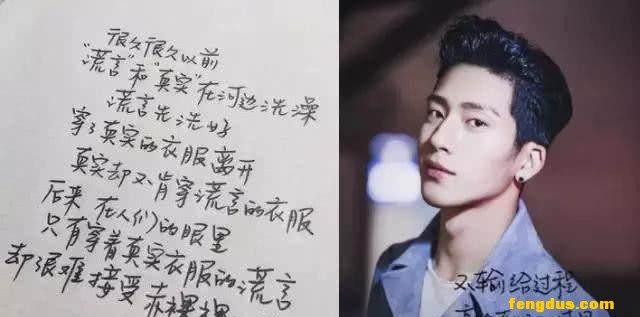 很久很久以前
"谎言"和"真实"在河边洗澡
谎言先洗好
穿了真实的衣服离开
真实却不肯穿谎言的衣服
后来 在人们的眼里
只有穿着真实衣服的谎言
却很难接受赤裸裸
不输给过程
fengdus.com